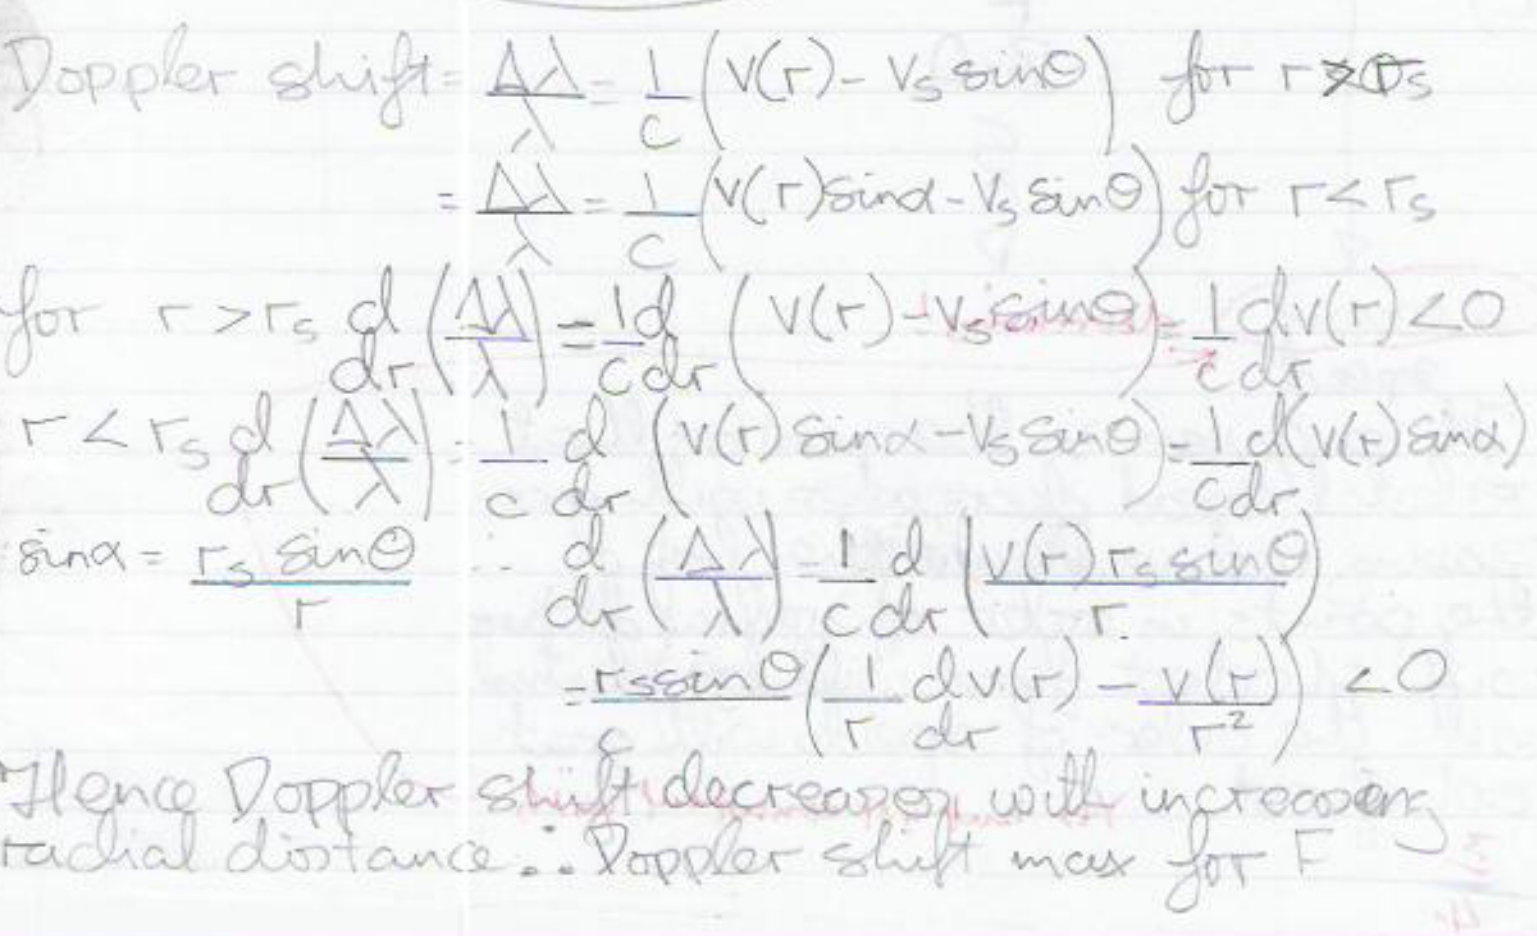 Doppler shift = Δλ/λ = 1/c (v(r) - Vs sinθ) for r > rs
= Δλ/λ = 1/c (v(r) sinα - Vs sinθ) for r < rs
for r > rs d/dr (Δλ/λ) = 1/c d/dr (v(r) - Vs sinθ) = 1/c dv(r)/dr < 0
r < rs d/dr (Δλ/λ) = 1/c d/dr (v(r) sinα - Vs sinθ) = 1/c d(v(r) sinα)/dr
sinα = rs sinθ/r ∴ d/dr (Δλ/λ) = 1/c d/dr (v(r) rs sinθ/r)
= rs sinθ/c (1/r dv(r)/dr - v(r)/r²) < 0
Hence Doppler shift decreases with increasing
radial distance ∴ Doppler shift max for F